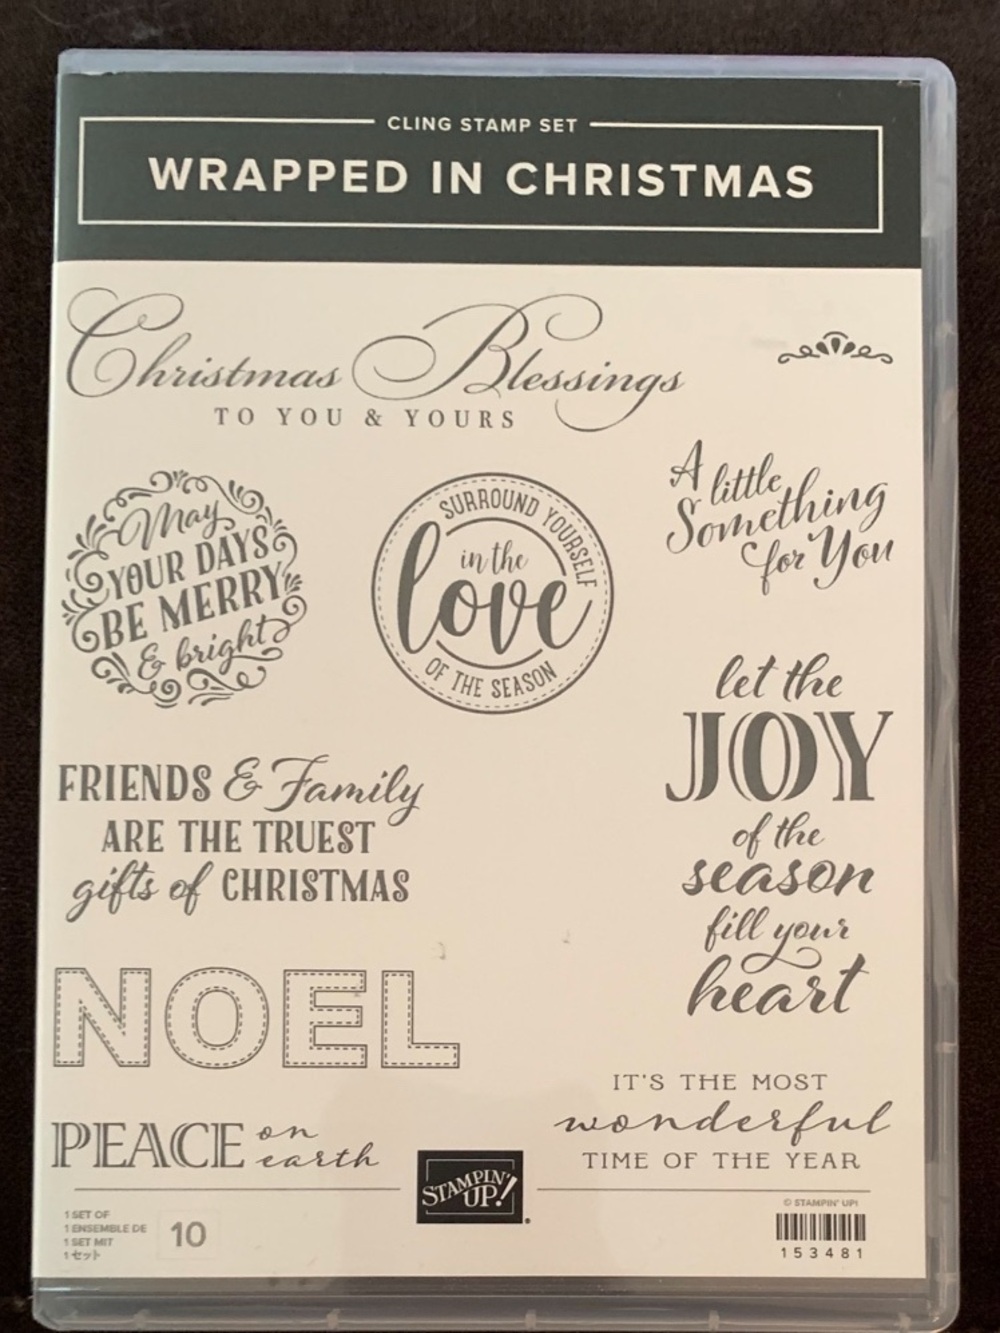 CLING STAMP SET
WRAPPED IN CHRISTMAS
Christmas Blessings
TO YOU & YOURS
A little
Something
for You
May
YOUR DAYS
BE MERRY
& bright
SURROUND YOURSELF
in the
love
OF THE SEASON
let the
JOY
of the
season
fill your
heart
FRIENDS & Family
ARE THE TRUEST
gifts of CHRISTMAS
NOEL
IT'S THE MOST
wonderful
TIME OF THE YEAR
PEACE on
earth
STAMPIN'
UP!
1 SET OF
1 ENSEMBLE DE
1 SET MIT
1セット
10
© STAMPIN' UP!
153481